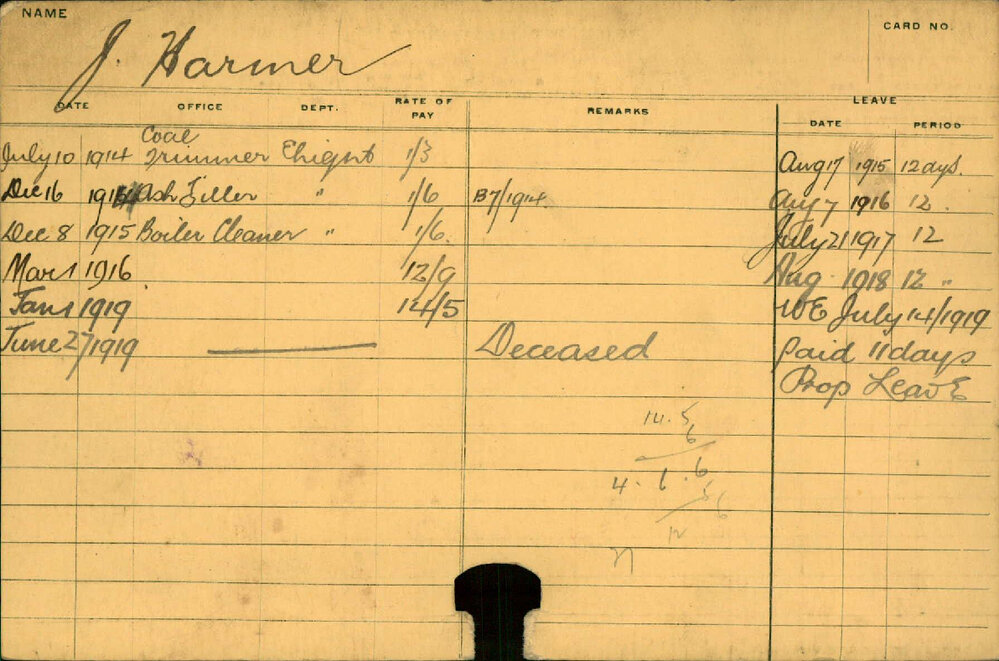 NAME
CARD NO.
J. Harmer
DATE OFFICE DEPT. RATE OF PAY REMARKS LEAVE
DATE PERIOD
July 10 1914 Coal Trimmer Elight 1/3 Aug 17 1915 12 days.
Dec 16 1914 Ash Filler " 1/6 B7/1914. Aug 7 1916 12 .
Dec 8 1915 Boiler Cleaner " 1/6. July 21 1917 12
Mar 1 1916 12/9 Aug 1918 12 "
Jan 1 1919 14/5 WE July 14/1919
June 27/1919 Deceased Paid 11 days
Prop Leave
14.5
6
4.6.6